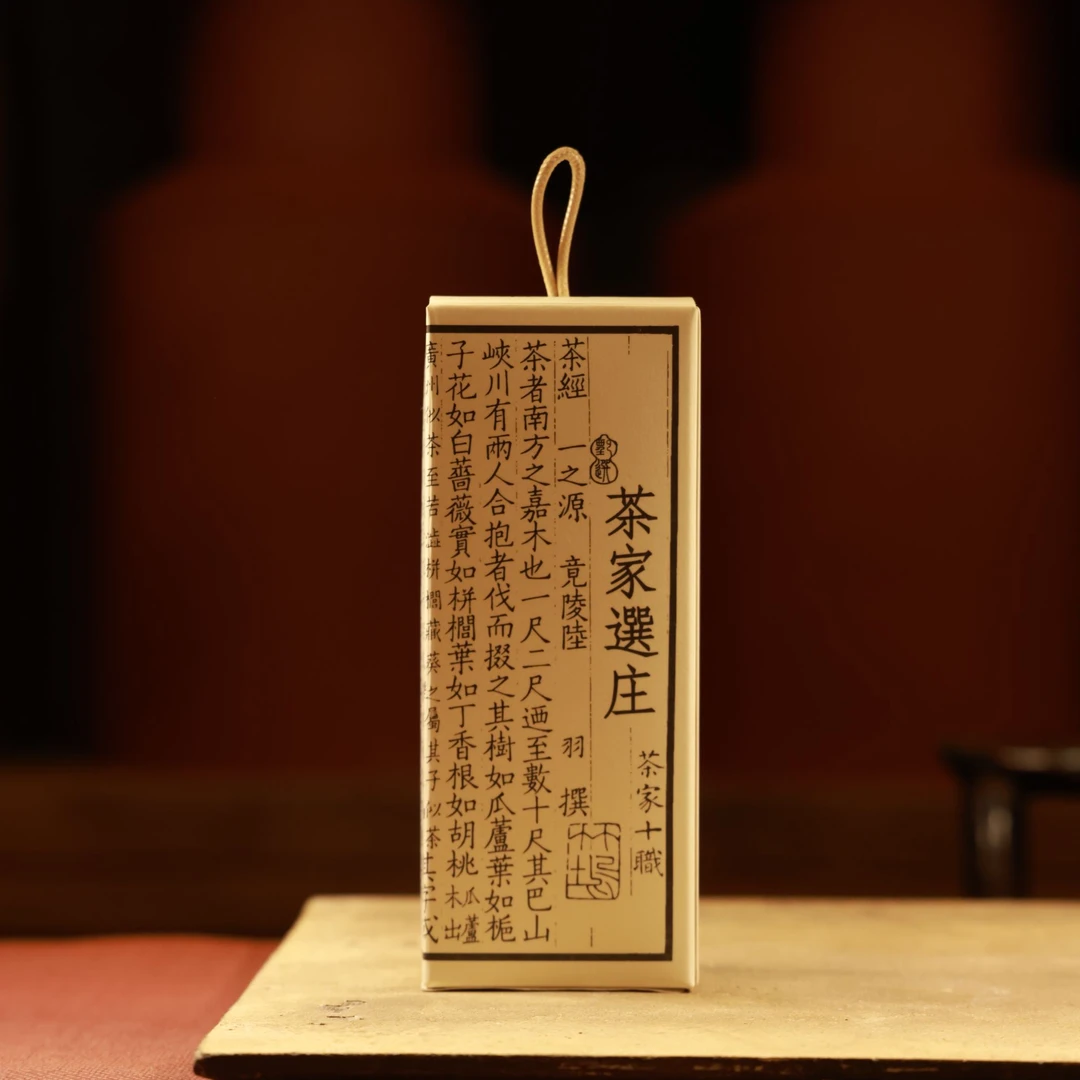 茶家十職
茶家選庄
茶經 一之源 竟陵陸 羽 撰
茶者南方之嘉木也一尺二尺迺至數十尺其巴山
峽川有兩人合抱者伐而掇之其樹如瓜蘆葉如梔
子花如白薔薇實如栟櫚葉如丁香根如胡桃
瓜蘆
木出
廣州似茶至苦澁栟櫚藏葵之屬其子似茶